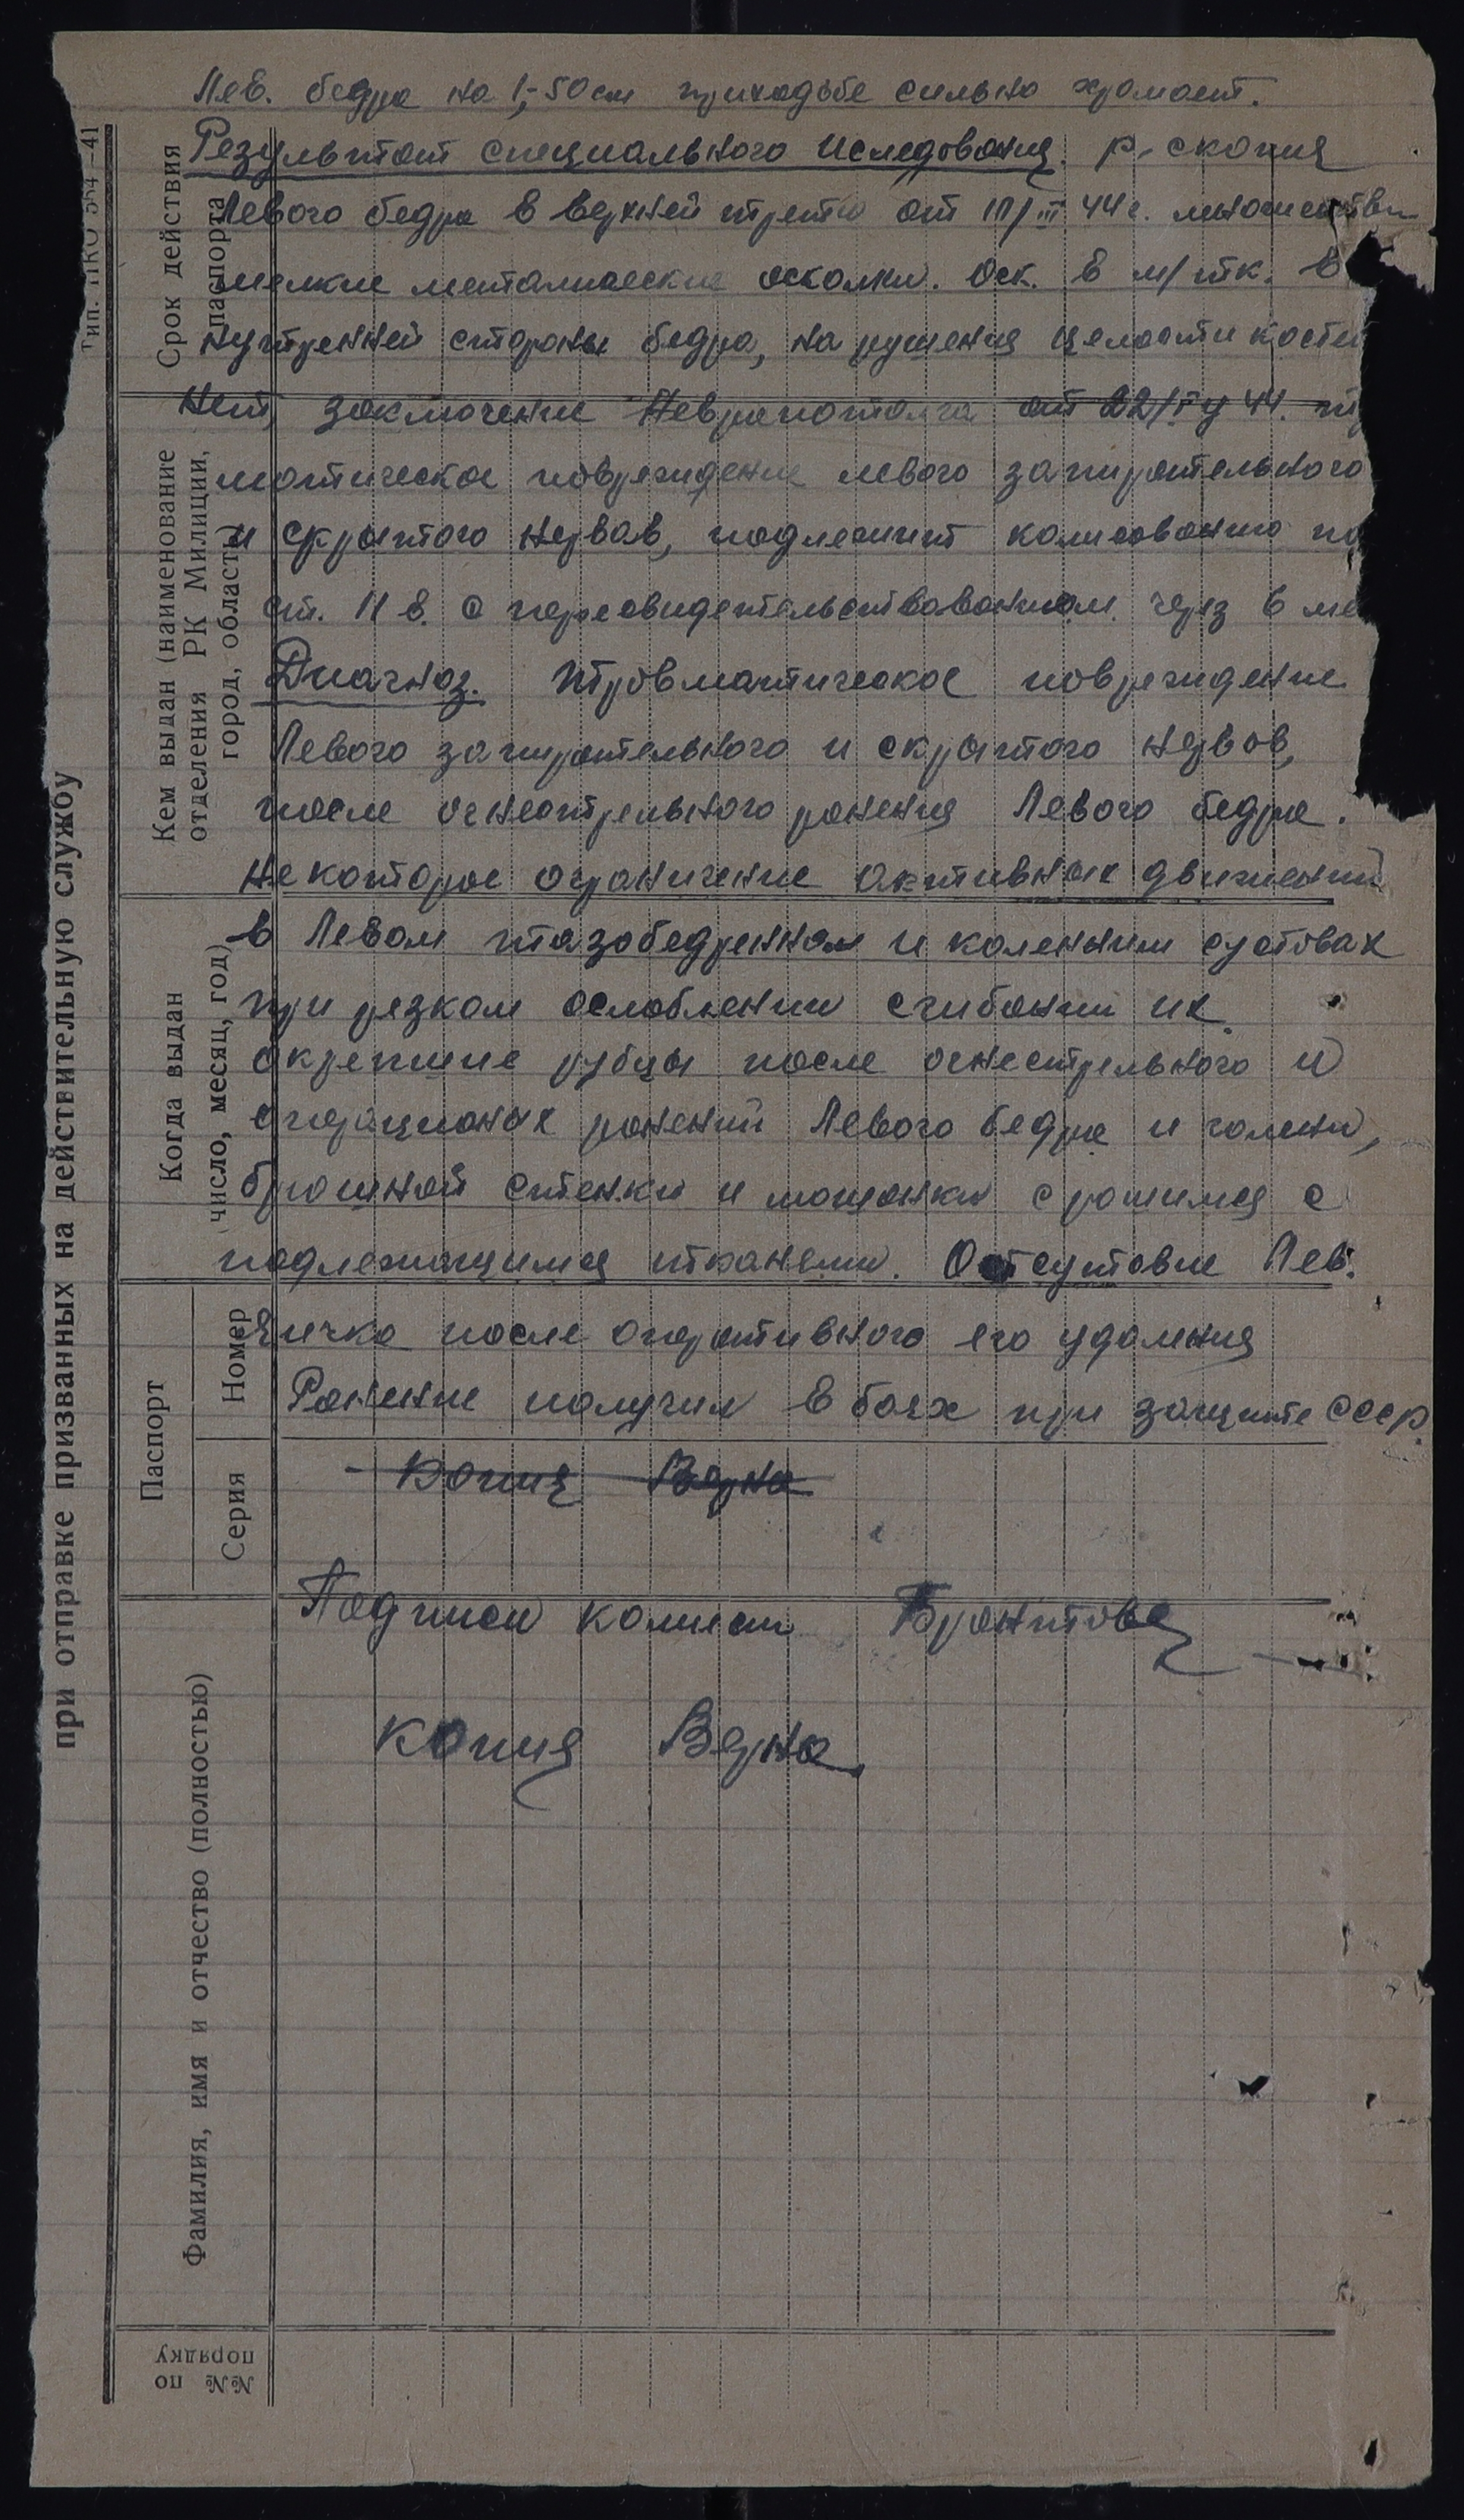 Лев. бедра на 1,-50 см приходьбе сильно хромает.
Результат специального иследования. Р-скопия
Левого бедра в верхней трети от 17/III 44 г. множестве
мелкие металические осколки. Оск. в м/тк. в
нутренней стороны бедра, на рушения целости костей
нет, заключение Неврапотолга от 22/IV 44.
матическое повреждение левого запирательного
и скрытого нервов, подлежит комисованию по
ст. 11 в. с пересвидетельствованием через 6 ме
Диагноз. Травматическое повреждение
Левого запирательного и скрытого нервов,
после огнестрельного ранения Левого бедра.
Некоторое ограничение активных движений
в Левом тазобедренном и коленным суставах
при резком ослаблении сгибании их.
окрепшие рубцы после огнестрельного и
операционых ранений Левого бедра и голени,
брюшной стенки и мошонки срошимся с
подлежащимся тканями. Отсутствие Лев.
Яичка после оперативного его удаления
Ранение получил в боях при защите СССР.
Копия Верна
Подписи комисии Бронтова
Копия Верна
Тип. НКО 554—41
при отправке призванных на действительную службу
Срок действия
паспорта
Кем выдан (наименование
отделения РК Милиции,
город, область)
Когда выдан
(число, месяц, год)
Паспорт
Номер
Серия
Фамилия, имя и отчество (полностью)
№№ по
порядку